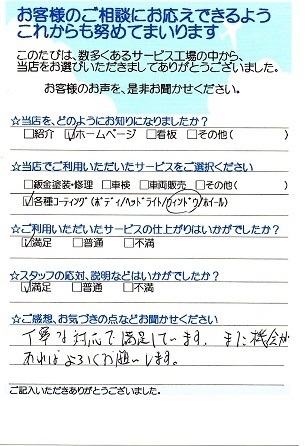 お客様のご相談にお応えできるよう
これからも努めてまいります
このたびは、数多くあるサービス工場の中から、
当店をお選びいただきましてありがとうございました。
お客様のお声を、是非お聞かせください。
☆当店を、どのようにお知りになりましたか？
□紹介 ☑ホームページ □看板 □その他( )
☆当店でご利用いただいたサービスをご選択ください
□鈑金塗装・修理 □車検 □車両販売 □その他( )
☑各種コーティング(ボディ/ヘッドライト/ウィンドウ/ホイール)
☆ご利用いただいたサービスの仕上がりはいかがでしたか？
☑満足 □普通 □不満
☆スタッフの応対、説明などはいかがでしたか？
☑満足 □普通 □不満
☆ご感想、お気づきの点などお聞かせください
丁寧な対応で満足しています。また機会が
あればよろしくお願いします。
ご記入いただきありがとうございました。